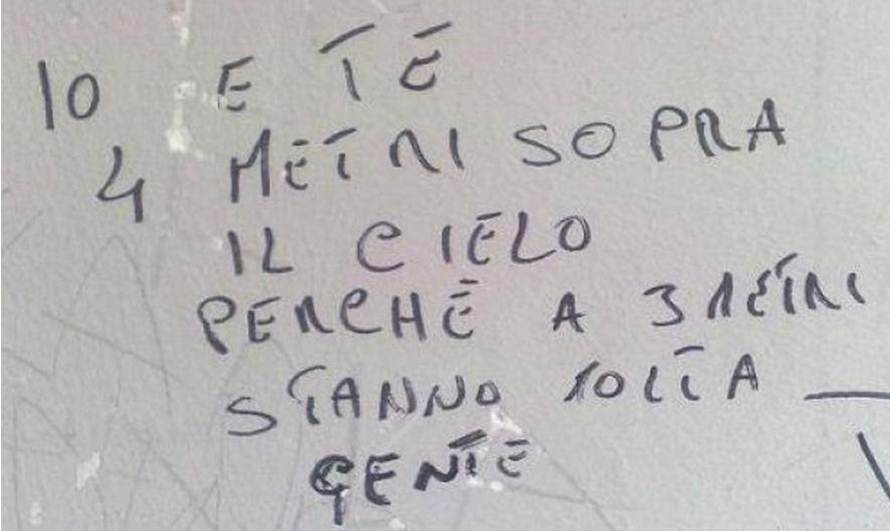 IO E TE
4 METRI SOPRA
IL CIELO
PERCHÈ A 3 METRI
STANNO MOLTA
GENTE